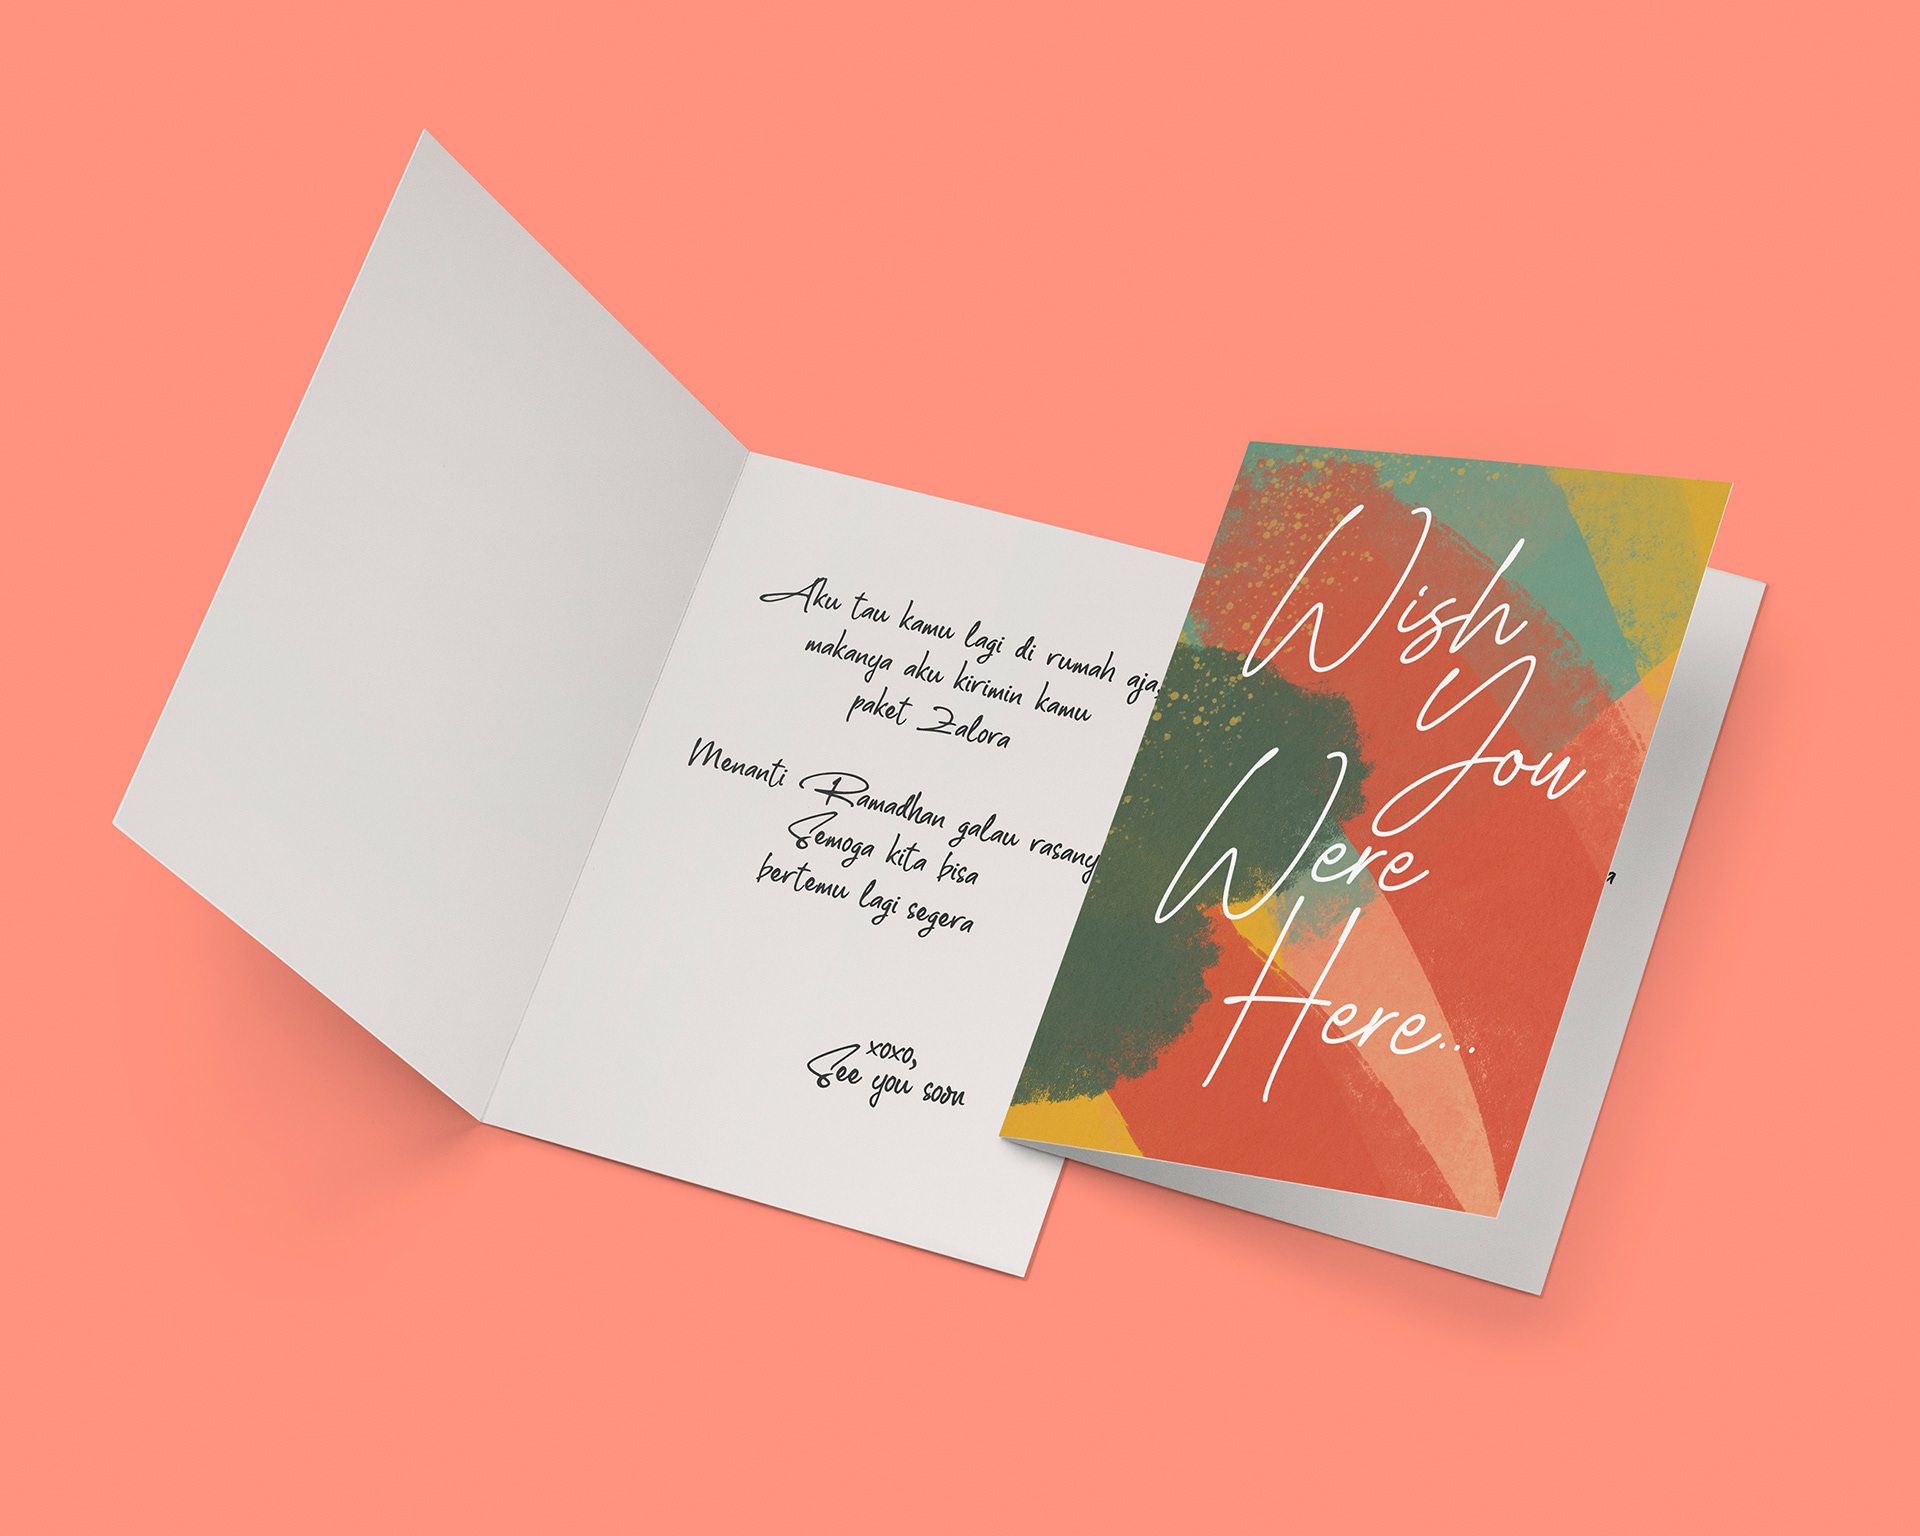 Aku tau kamu lagi di rumah aja,
makanya aku kirimin kamu
paket Zalora
Menanti Ramadhan galau rasany
Semoga kita bisa
bertemu lagi segera
xoxo,
See you soon
Wish
You
Were
Here...
a